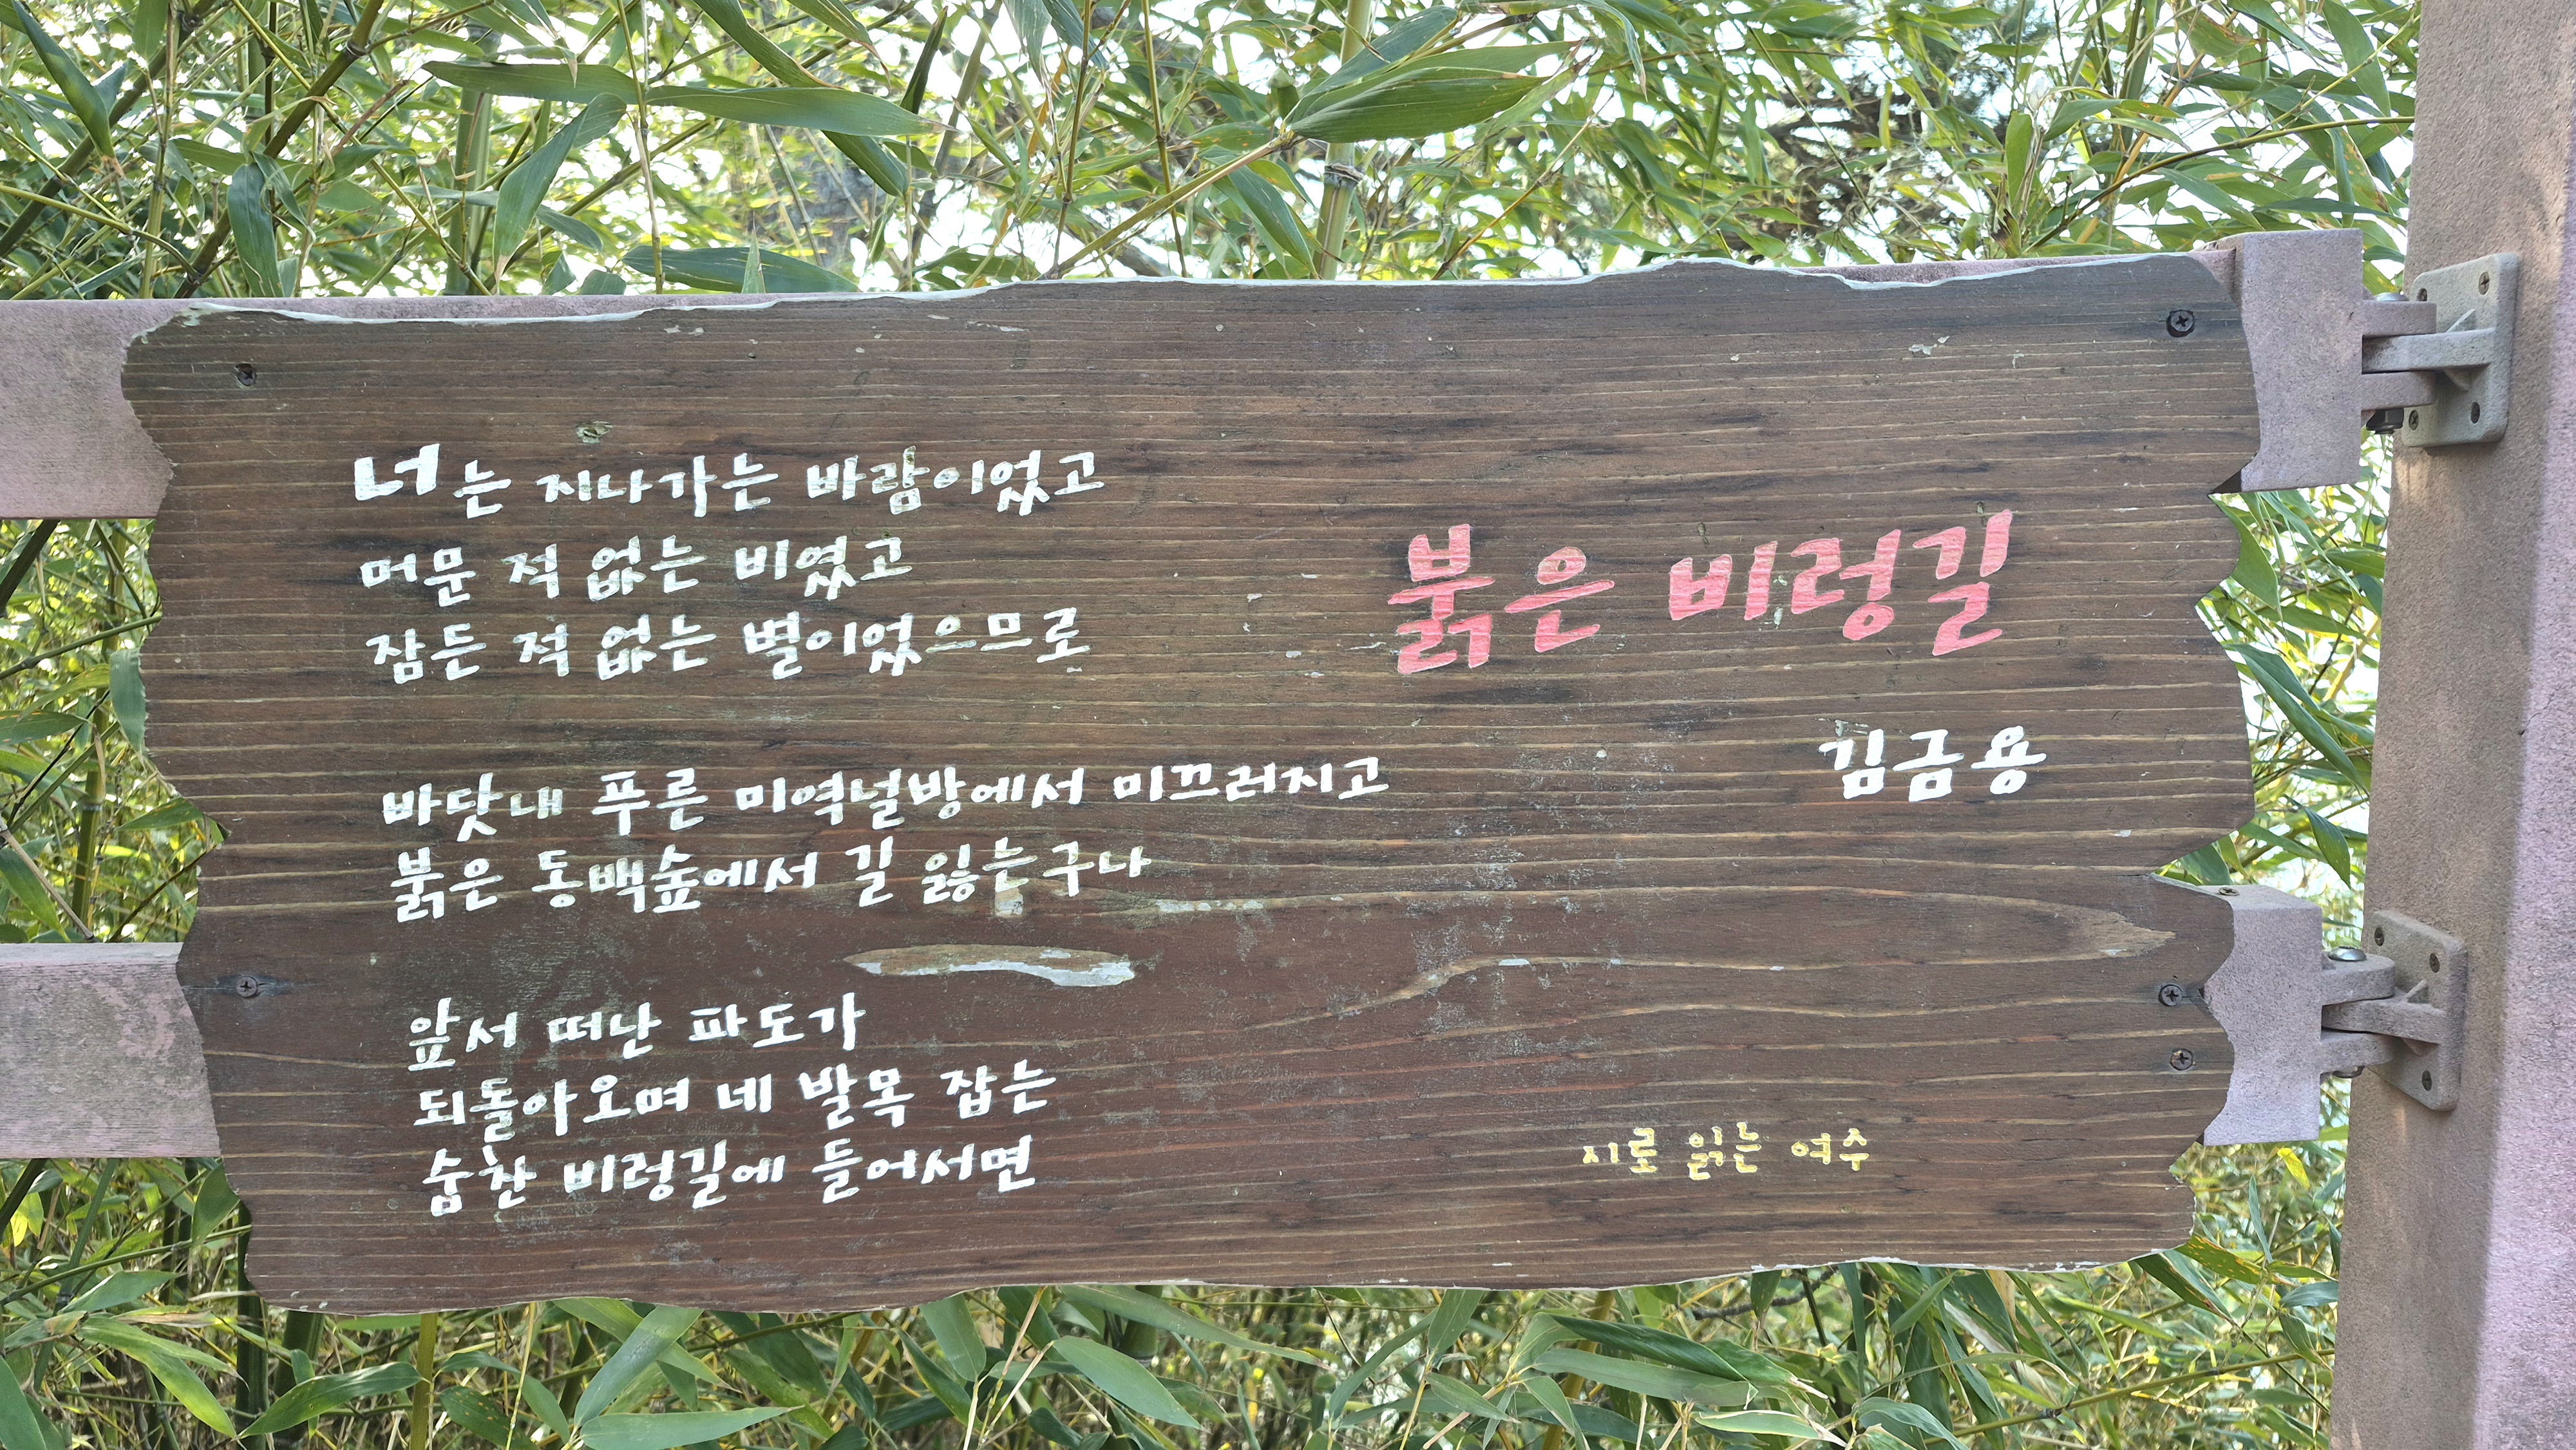 붉은 비렁길
김금용
너는 지나가는 바람이었고
머문 적 없는 비였고
잠든 적 없는 별이었으므로
바닷내 푸른 미역널방에서 미끄러지고
붉은 동백숲에서 길 잃는구나
앞서 떠난 파도가
되돌아오며 네 발목 잡는
숨찬 비렁길에 들어서면
시로 읽는 여수